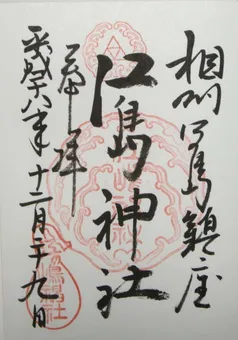 相州江島鎮座
江島神社
奉拝
平成十八年十二月二十九日